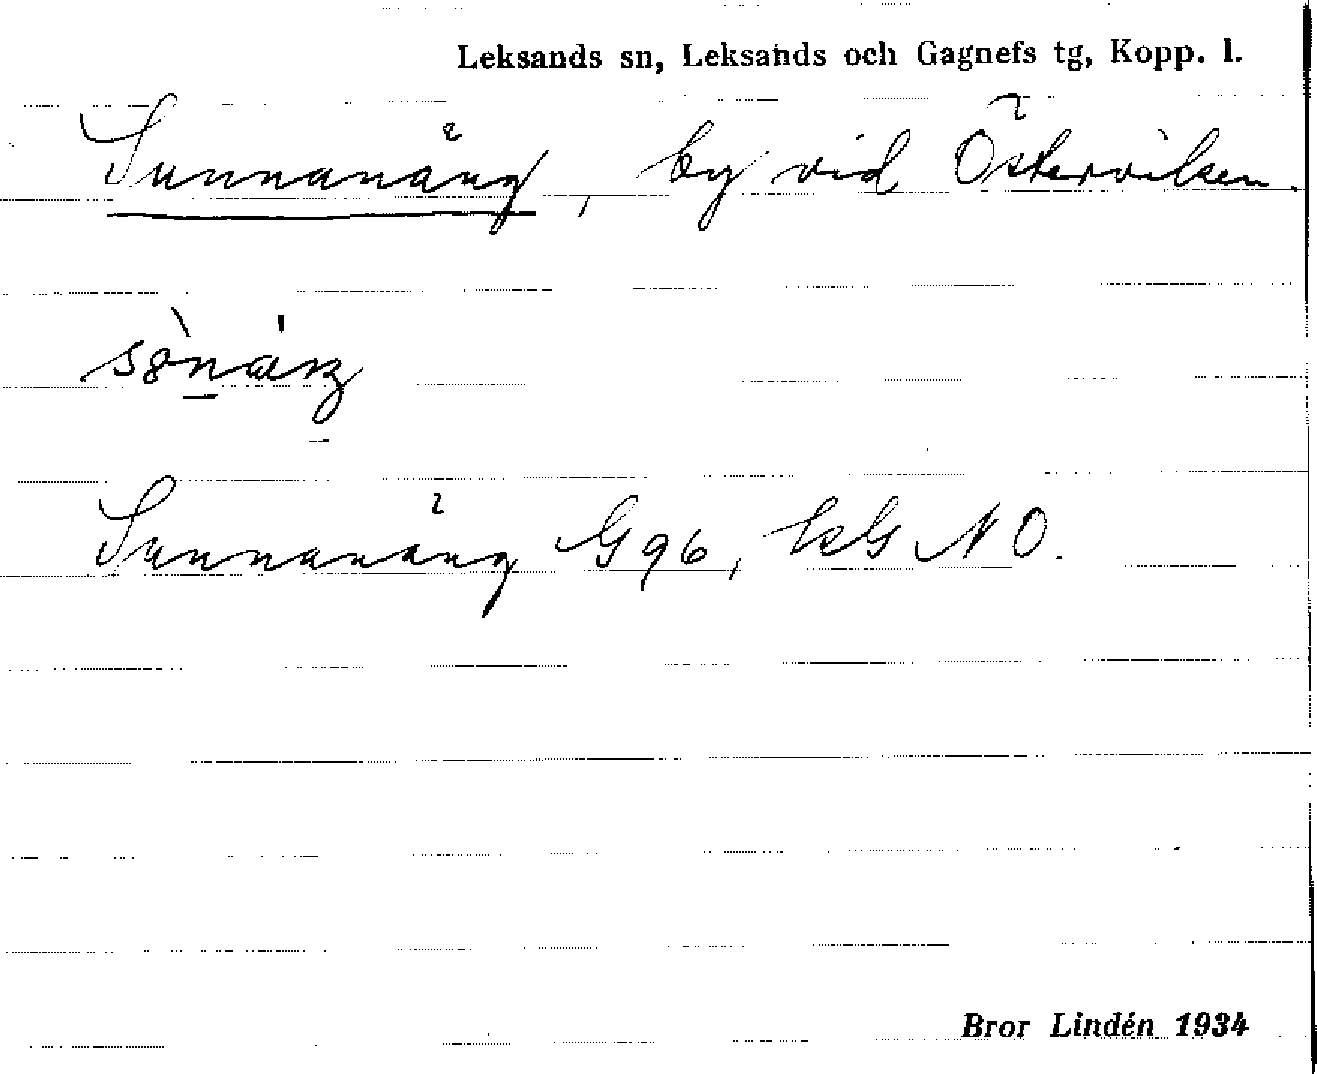 Leksands sn, Leksands och Gagnefs tg, Kopp. l.
Sunnanäng, by vid Österviken.
Sunnanäng G96, kG NO.
Bror Lindén 1934